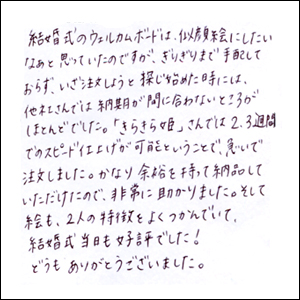 結婚式のウェルカムボードは、似顔絵にしたい
なぁと思っていたのですが、ぎりぎりまで手配して
おらず、いざ注文しようと探し始めた時には、
他社さんでは納期が間に合わないところが
ほとんどでした。「きらきら姫」さんでは2.3週間
でのスピード仕上げが可能ということで、急いで
注文しました。かなり余裕を持って納品して
いただけたので、非常に助かりました。そして
絵も、2人の特徴をよくつかんでいて、
結婚式当日も好評でした!
どうもありがとうございました。